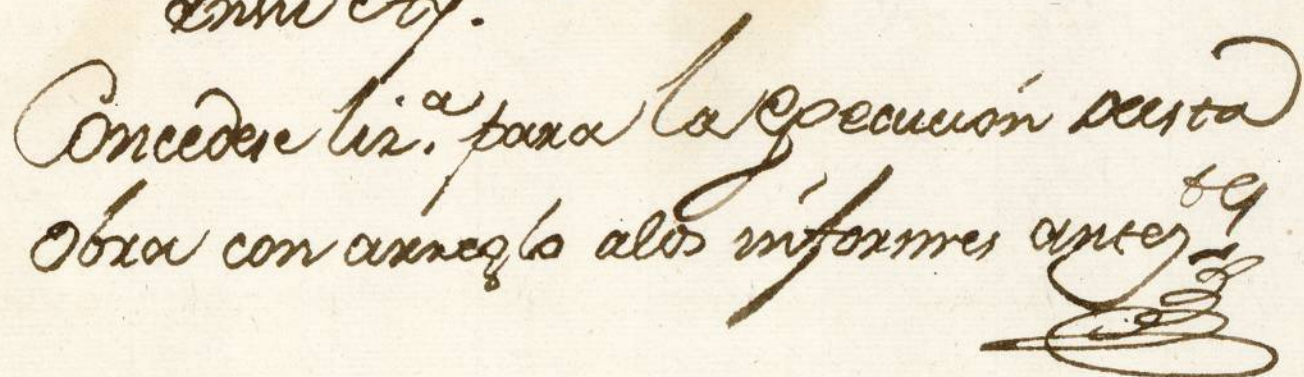 Concedese liz.ª para la egecucion deesta
obra con arreglo alos informes antez.tes